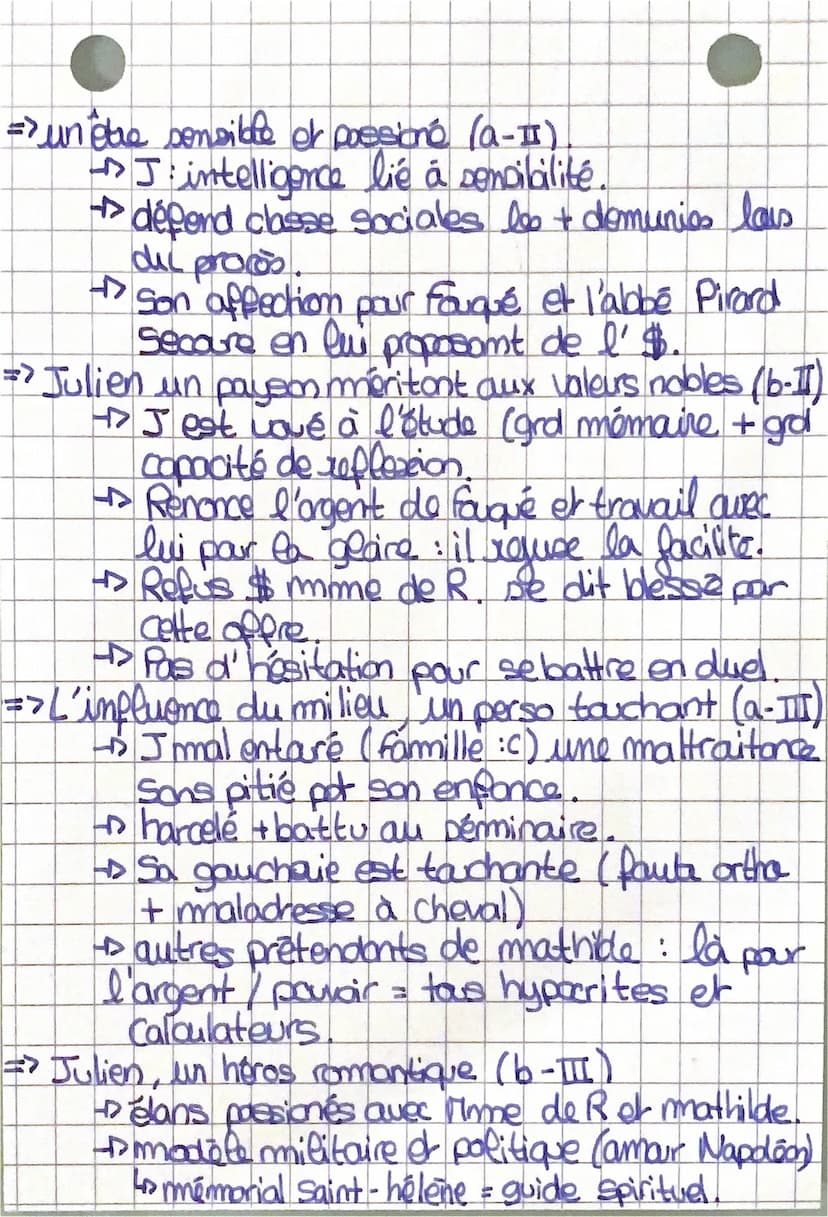 => un être sensible et passioné (a-II).
→ J : intelligence lié à sensibilité.
→ défend classe sociales les + demunies lors
du procès.
→ Son affection pour Fouqué et l'abbé Pirard
secoure en lui proposant de l'$.
=> Julien un paysan méritant aux valeurs nobles (b-II)
→ J est voué à l'étude (grd mémoire + grd
capacité de reflexion.
→ Renonce l'argent de Fouqué et travail avec
lui par la gloire : il refuse la facilité.
→ Refus $ mme de R. se dit blessé par
cette offre.
→ Pas d'hésitation pour se battre en duel.
=> L'influence du milieu, un perso touchant (a-III)
→ J mal entouré (famille :c) une maltraitance
sans pitié pdt son enfance.
→ harcelé + battu au séminaire.
→ Sa gaucherie est touchante (faute ortho
+ maladresse à cheval)
→ autres prétendants de mathilde : là par
l'argent / pouvoir = tous hypocrites et
calculateurs.
=> Julien, un héros romantique (b-III)
→ élans passionés avec Mme de R et mathilde.
→ modèle militaire et politique (amour Napoléon)
↳ mémorial Saint-hélène = guide spirituel.